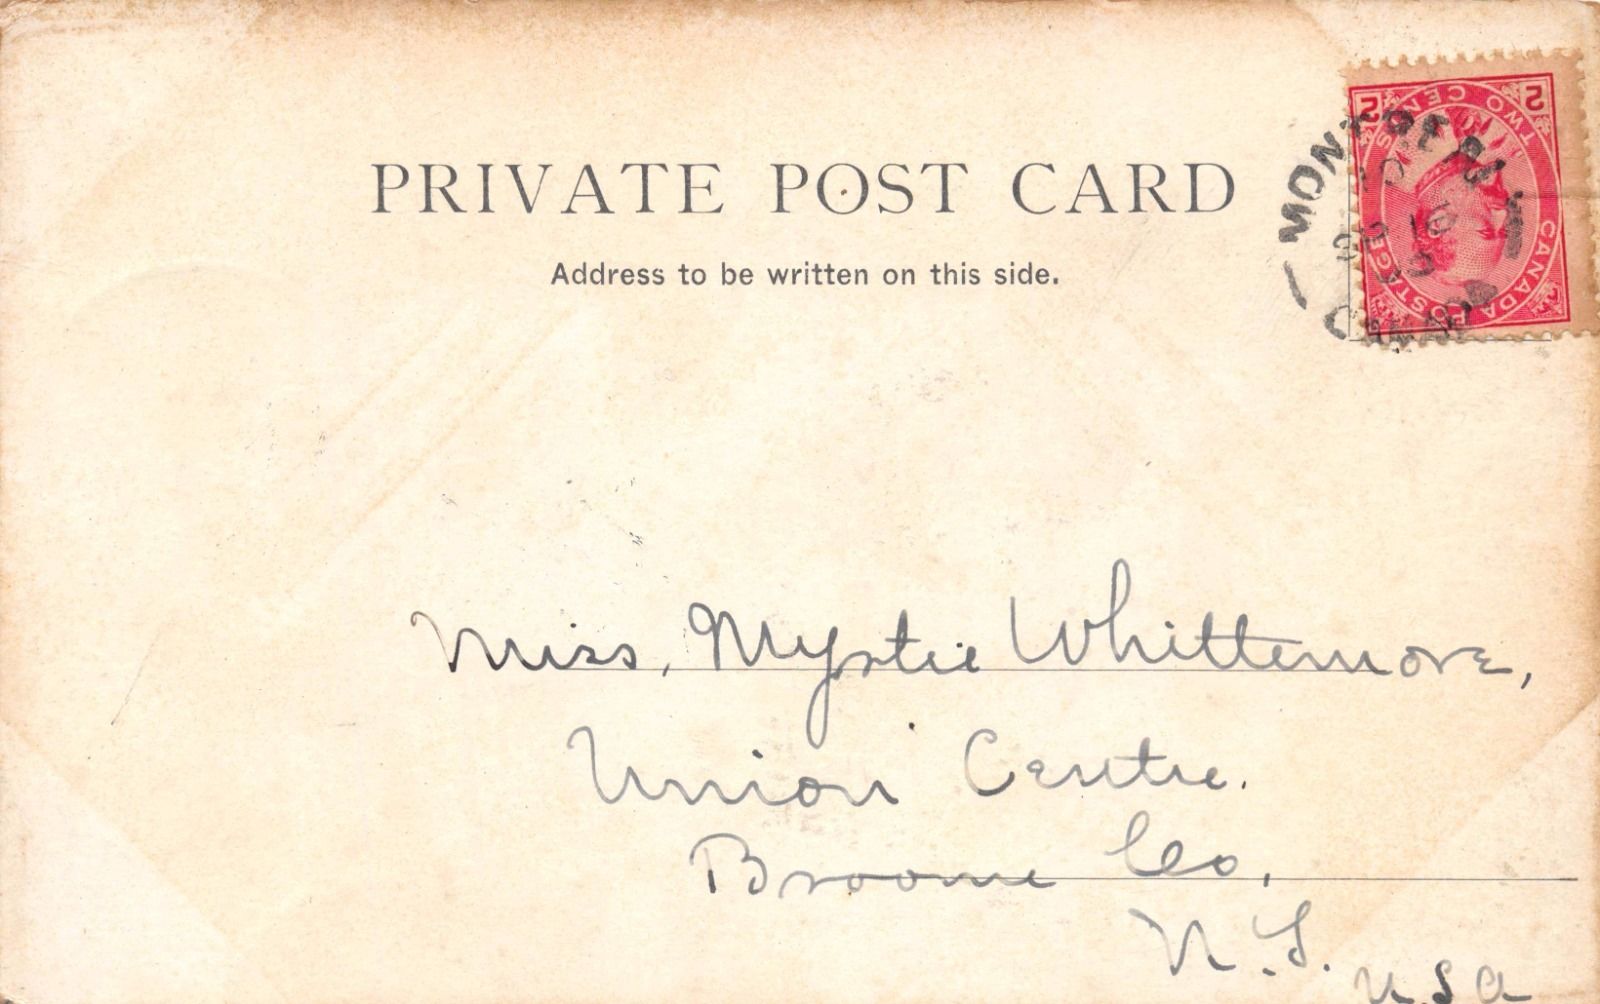 PRIVATE POST CARD
Address to be written on this side.
MONTREAL
CANADA POSTAGE
TWO CENTS
2 2
Miss, Myrtie Whittemore,
Union Centre.
Broome Co,
N.Y.
USA